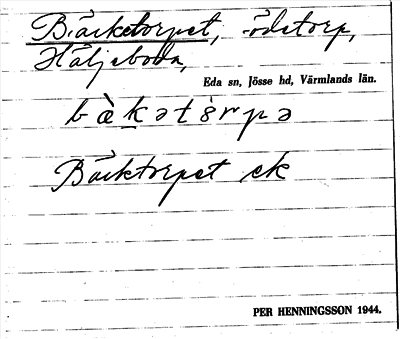 Bäcketorpet, ödetorp,
Häljeboda,
Eda sn, Jösse hd, Värmlands län.
bàkətòrpə
Bäcktorpet ek
PER HENNINGSSON 1944.